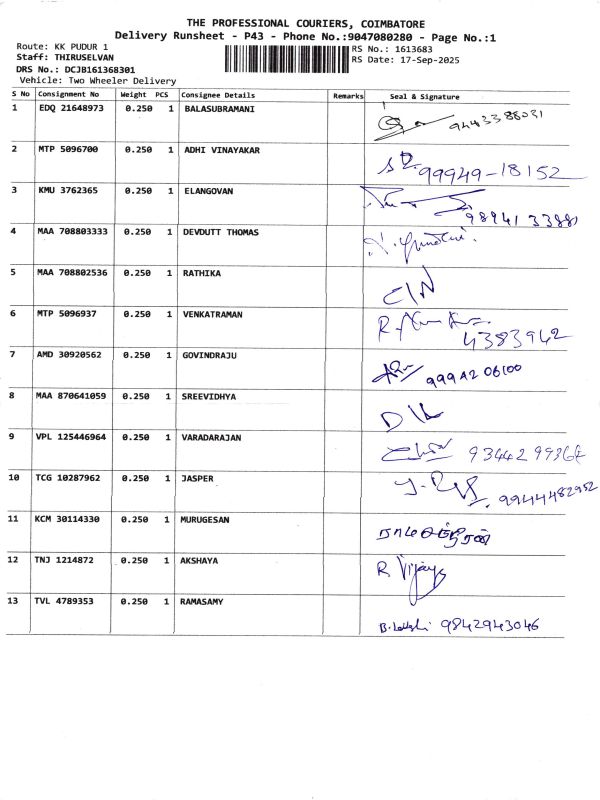 THE PROFESSIONAL COURIERS, COIMBATORE
Delivery Runsheet - P43 - Phone No.:9047080280 - Page No.:1
Route: KK PUDUR 1 RS No.: 1613683
Staff: THIRUSELVAN RS Date: 17-Sep-2025
DRS No.: DCJB161368301
Vehicle: Two Wheeler Delivery
S No Consignment No Weight PCS Consignee Details Remarks Seal & Signature
1 EDQ 21648973 0.250 1 BALASUBRAMANI 9443388031
2 MTP 5096700 0.250 1 ADHI VINAYAKAR 99949-18152
3 KMU 3762365 0.250 1 ELANGOVAN 98941 33881
4 MAA 708803333 0.250 1 DEVDUTT THOMAS
5 MAA 708802536 0.250 1 RATHIKA
6 MTP 5096937 0.250 1 VENKATRAMAN 4383942
7 AMD 30920562 0.250 1 GOVINDRAJU 99942 06100
8 MAA 870641059 0.250 1 SREEVIDHYA
9 VPL 125446964 0.250 1 VARADARAJAN
10 TCG 10287962 0.250 1 JASPER 9944482952
11 KCM 30114330 0.250 1 MURUGESAN
12 TNJ 1214872 0.250 1 AKSHAYA R Vijaya
13 TVL 4789353 0.250 1 RAMASAMY 9842943046